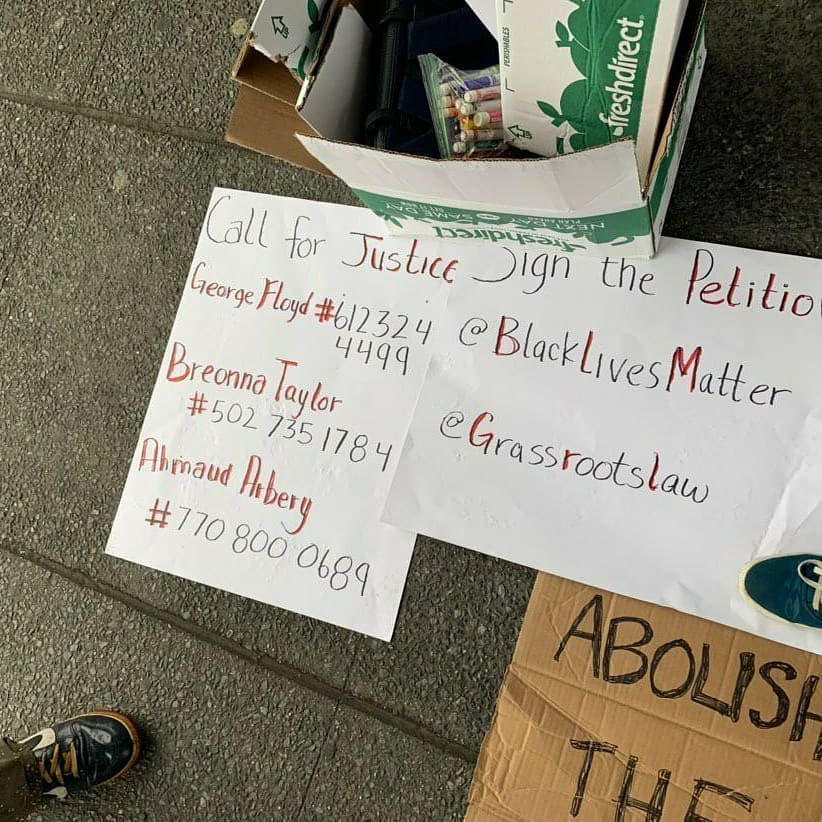 PERISHABLES
freshdirect.
NEXT DAY SAME DAY
freshdirect
Call for Justice
George Floyd #612324
4499
Breonna Taylor
#502 735 1784
Ahmaud Arbery
#770 800 0689
Sign the Petitio
@BlackLivesMatter
@Grassrootslaw
ABOLISH
THE